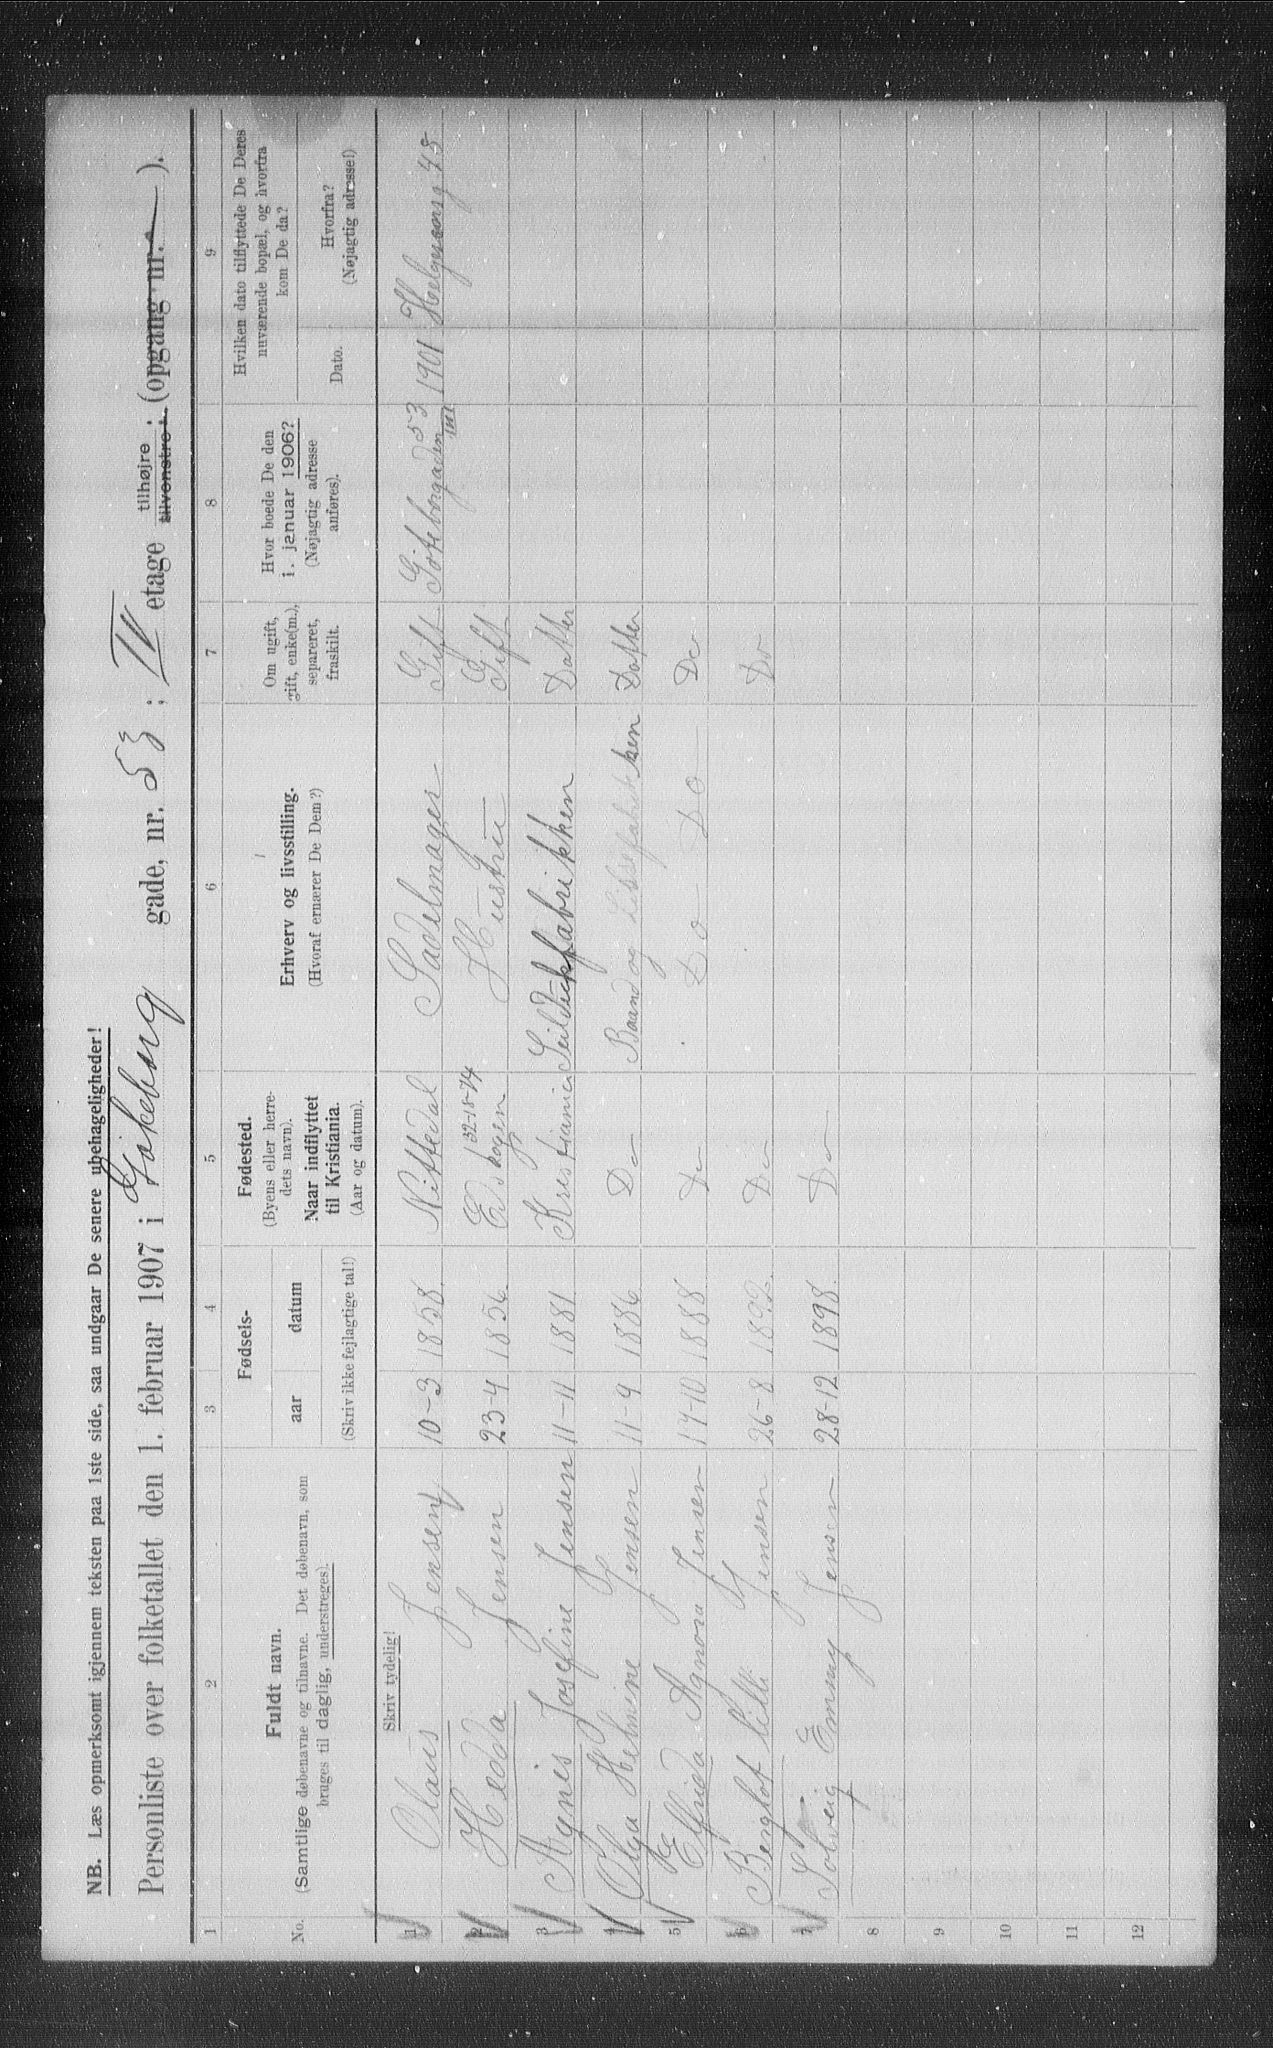 NB. Læs opmerksomt igjennem teksten paa 1ste side, saa undgaar De senere ubehageligheder!
Personliste over folketallet den 1. februar 1907 i Gøteborg gade, nr. 53 ; IV etage tilhøjre ; tilvenstre ; (opgang nr. ).
1 2 3 4 5 6 7 8 9
No.
Fuldt navn.
(Samtlige døbenavne og tilnavne. Det døbenavn, som
bruges til daglig, understreges).
Fødsels-
aar datum
(Skriv ikke fejlagtige tal!)
Fødested.
(Byens eller herre-
dets navn).
Naar indflyttet
til Kristiania.
(Aar og datum).
Erhverv og livsstilling.
(Hvoraf ernærer De Dem?)
Om ugift,
gift, enke(m.),
separeret,
fraskilt.
Hvor boede De den
1. januar 1906?
(Nøjagtig adresse
anføres).
Hvilken dato tilflyttede De Deres
nuværende bopæl, og hvorfra
kom De da?
Dato.
Hvorfra?
(Nøjagtig adresse!)
Skriv tydelig!
1 Olaus Jensen 10-3 1858. Nittedal Sadelmager Gift Gøteborgaden 53 1901 Helgesensg 48
2 Hedda Jensen 23-4 1856 Eidskogen Hustru Gift
3 Agnes Josefine Jensen 11-11 1881 Kristiania Seildugfabrikken Datter
4 Olga Helmine Jensen 11-9 1886 Do Baand og Lissefabrikken Datter
5 Elfrida Agnora Jensen 17-10 1888 Do Do Do Do
6 Bergljot Lilli Jensen 26-8 1892. Do Do
7 Solveig Emmy Jensen 28-12 1898. Do
8
9
10
11
12